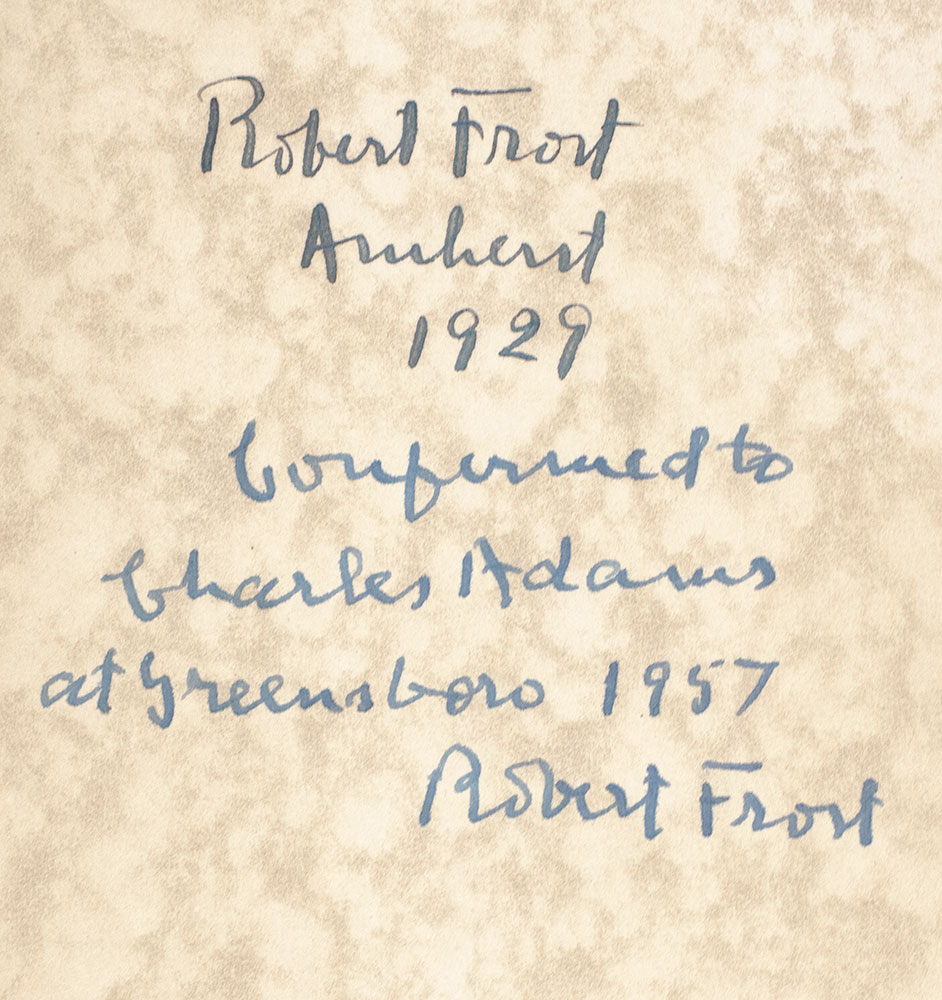 Robert Frost
Amherst
1929
Confermed to
Charles Adams
at Greensboro 1957
Robert Frost